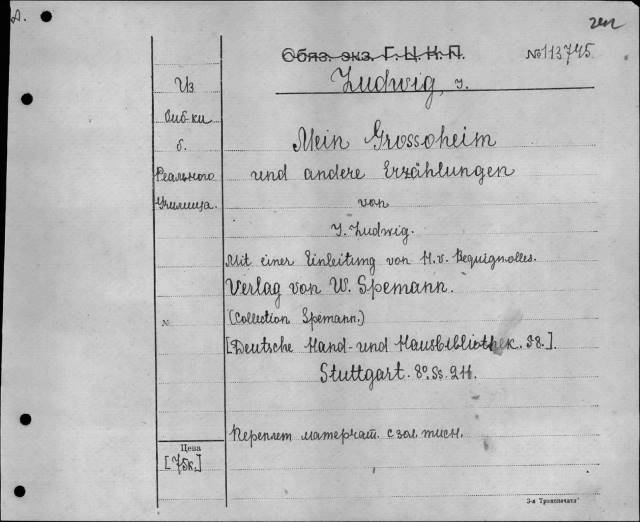 ген
Обяз. экз. Г. Ц. К. П.
№113745
Ludwig, J.
Из
биб-ки
б.
Реального
Училища.
Mein Grossoheim
und andere Erzählungen
von
J. Ludwig.
Mit einer Einleitung von H. v. Bequignolles.
Verlag von W. Spemann.
(Collection Spemann.)
№
[Deutsche Hand- und Hausbibliothek. 38.]
Stuttgart. 8° Ss. 211.
Переплет матерчат. с зол. тисн.
Цена
[75к.]
3-я Трансначать